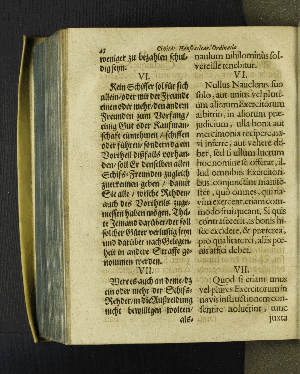 42 Civitat. Hanseaticar. Ordinatio
weniger zu bezahlen schul-
dig seyn.
VI.
Kein Schiffer sol für sich
allein / oder mit der Freunde
einen oder mehr / den andern
Freunden zum Vorfang /
einig Gut oder Kaufman-
schafft einnehmen / schiffen
oder führen / sondern da ein
Vortheil dißfalls vorhan-
den / soll Er denselben allen
Schifs-Freunden zugleich
zuerkennen geben / damit
Sie alle / welche Rehder
auch des Vortheils zuge-
niessen haben mögen. Thä-
te Jemand darüber / der soll
solcher Güter verlustig seyn
und darüber nach Gelegen-
heit in andere Straffe ge-
nommen werden.
VII.
Were es auch an deme / dz
ein oder mehr der Schifs-
Rehder / in die Ausreidung
nicht bewilligen wolten /
als-
naulum nihilominus sol-
vere ille tenebitur.
VI.
Nullus Nauclerus suo
solo, aut unius vel pluri-
um aliorum Exercitorum
arbitrio, in aliorum præ-
judicium, ulla bona aut
mercimonia recipere, na-
vi inferre, aut vehere de-
bet, sed si ullum lucrum
hoc nomine se offerat, il-
lud omnibus Exercitori-
bus communicare
bet, quo omnes, qui na-
vim exercent, etiam com-
modo fruantur, Si quis
contra fecerit, is bonis hi-
sce excidet, & præterea,
pro qualitate rei, aliis pœ-
nis affici debet.
VII.
Quod si etiam unus
vel plures Exercitorum in
navis instructionem con-
sentire noluerint, tunc
juxta